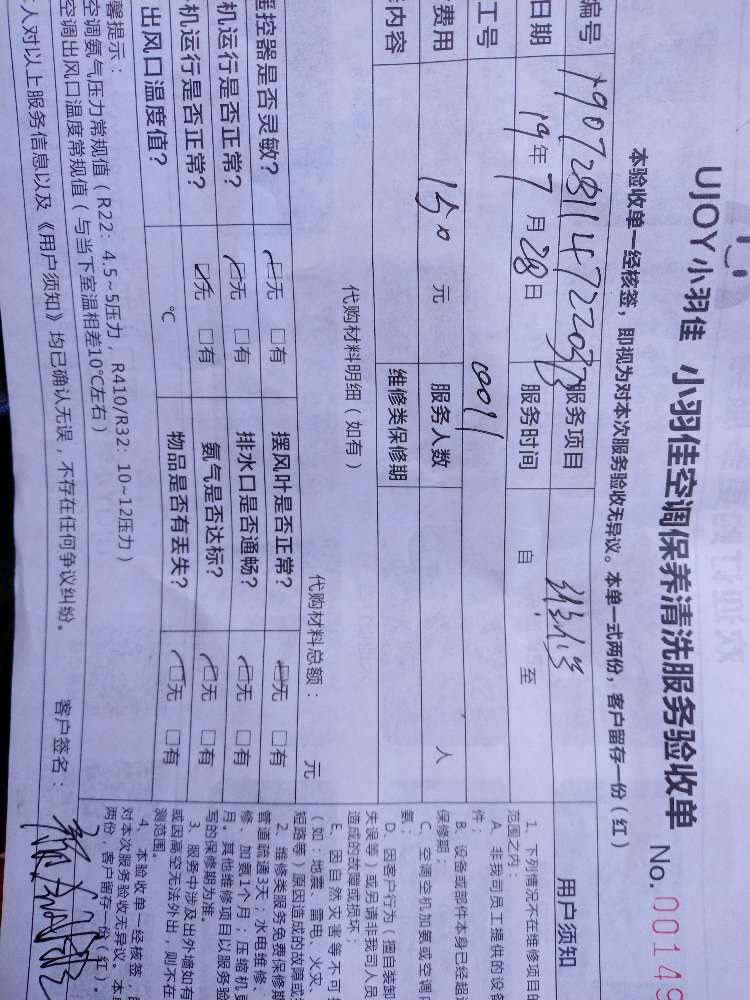 UJOY小羽佳 小羽佳空调保养清洗服务验收单
No. 00149
本验收单一经核签，即视为对本次服务验收无异议。本单一式两份，客户留存一份（红）
编号
服务项目
日期 19年7月28日 服务时间 自 至
工号 0011
费用 元 服务人数 人
内容 维修类保修期
代购材料明细（如有）
代购材料总额： 元
遥控器是否灵敏？ □无 □有 摆风叶是否正常？ □无 □有
机运行是否正常？ □无 □有 排水口是否通畅？ □无 □有
机运行是否正常？ □无 □有 氨气是否达标？ □无 □有
出风口温度值？ ℃ 物品是否有丢失？ □无 □有
馨提示：
空调氨气压力常规值（R22：4.5~5压力，R410/R32：10~12压力）
空调出风口温度常规值（与当下室温相差10℃左右）
人对以上服务信息以及《用户须知》均已确认无误，不存在任何争议纠纷。
客户签名：
用户须知
1、下列情况不在维修项目的
范围之内：
A、非我司员工提供的设备
件；
B、设备或部件本身已经超
保修期；
C、空调空机加氨或空调
氨；
D、因客户行为（擅自装卸
失误等）或另请非我司人员
造成的故障或损坏；
E、因自然灾害等不可
（如：地震、雷电、火灾、
短路等）原因造成的故障或
2、维修类服务免费保修期
管道疏通3天；水电维修、
修、加氨1个月；压缩机
月。其他维修项目以服务验
写的保修期为准。
3、服务中涉及出外墙如有
或因高空无法外出，则不在
测范围。
4、本验收单一经核签，
对本次服务验收无异议。本
两份，客户留存一份（红）。